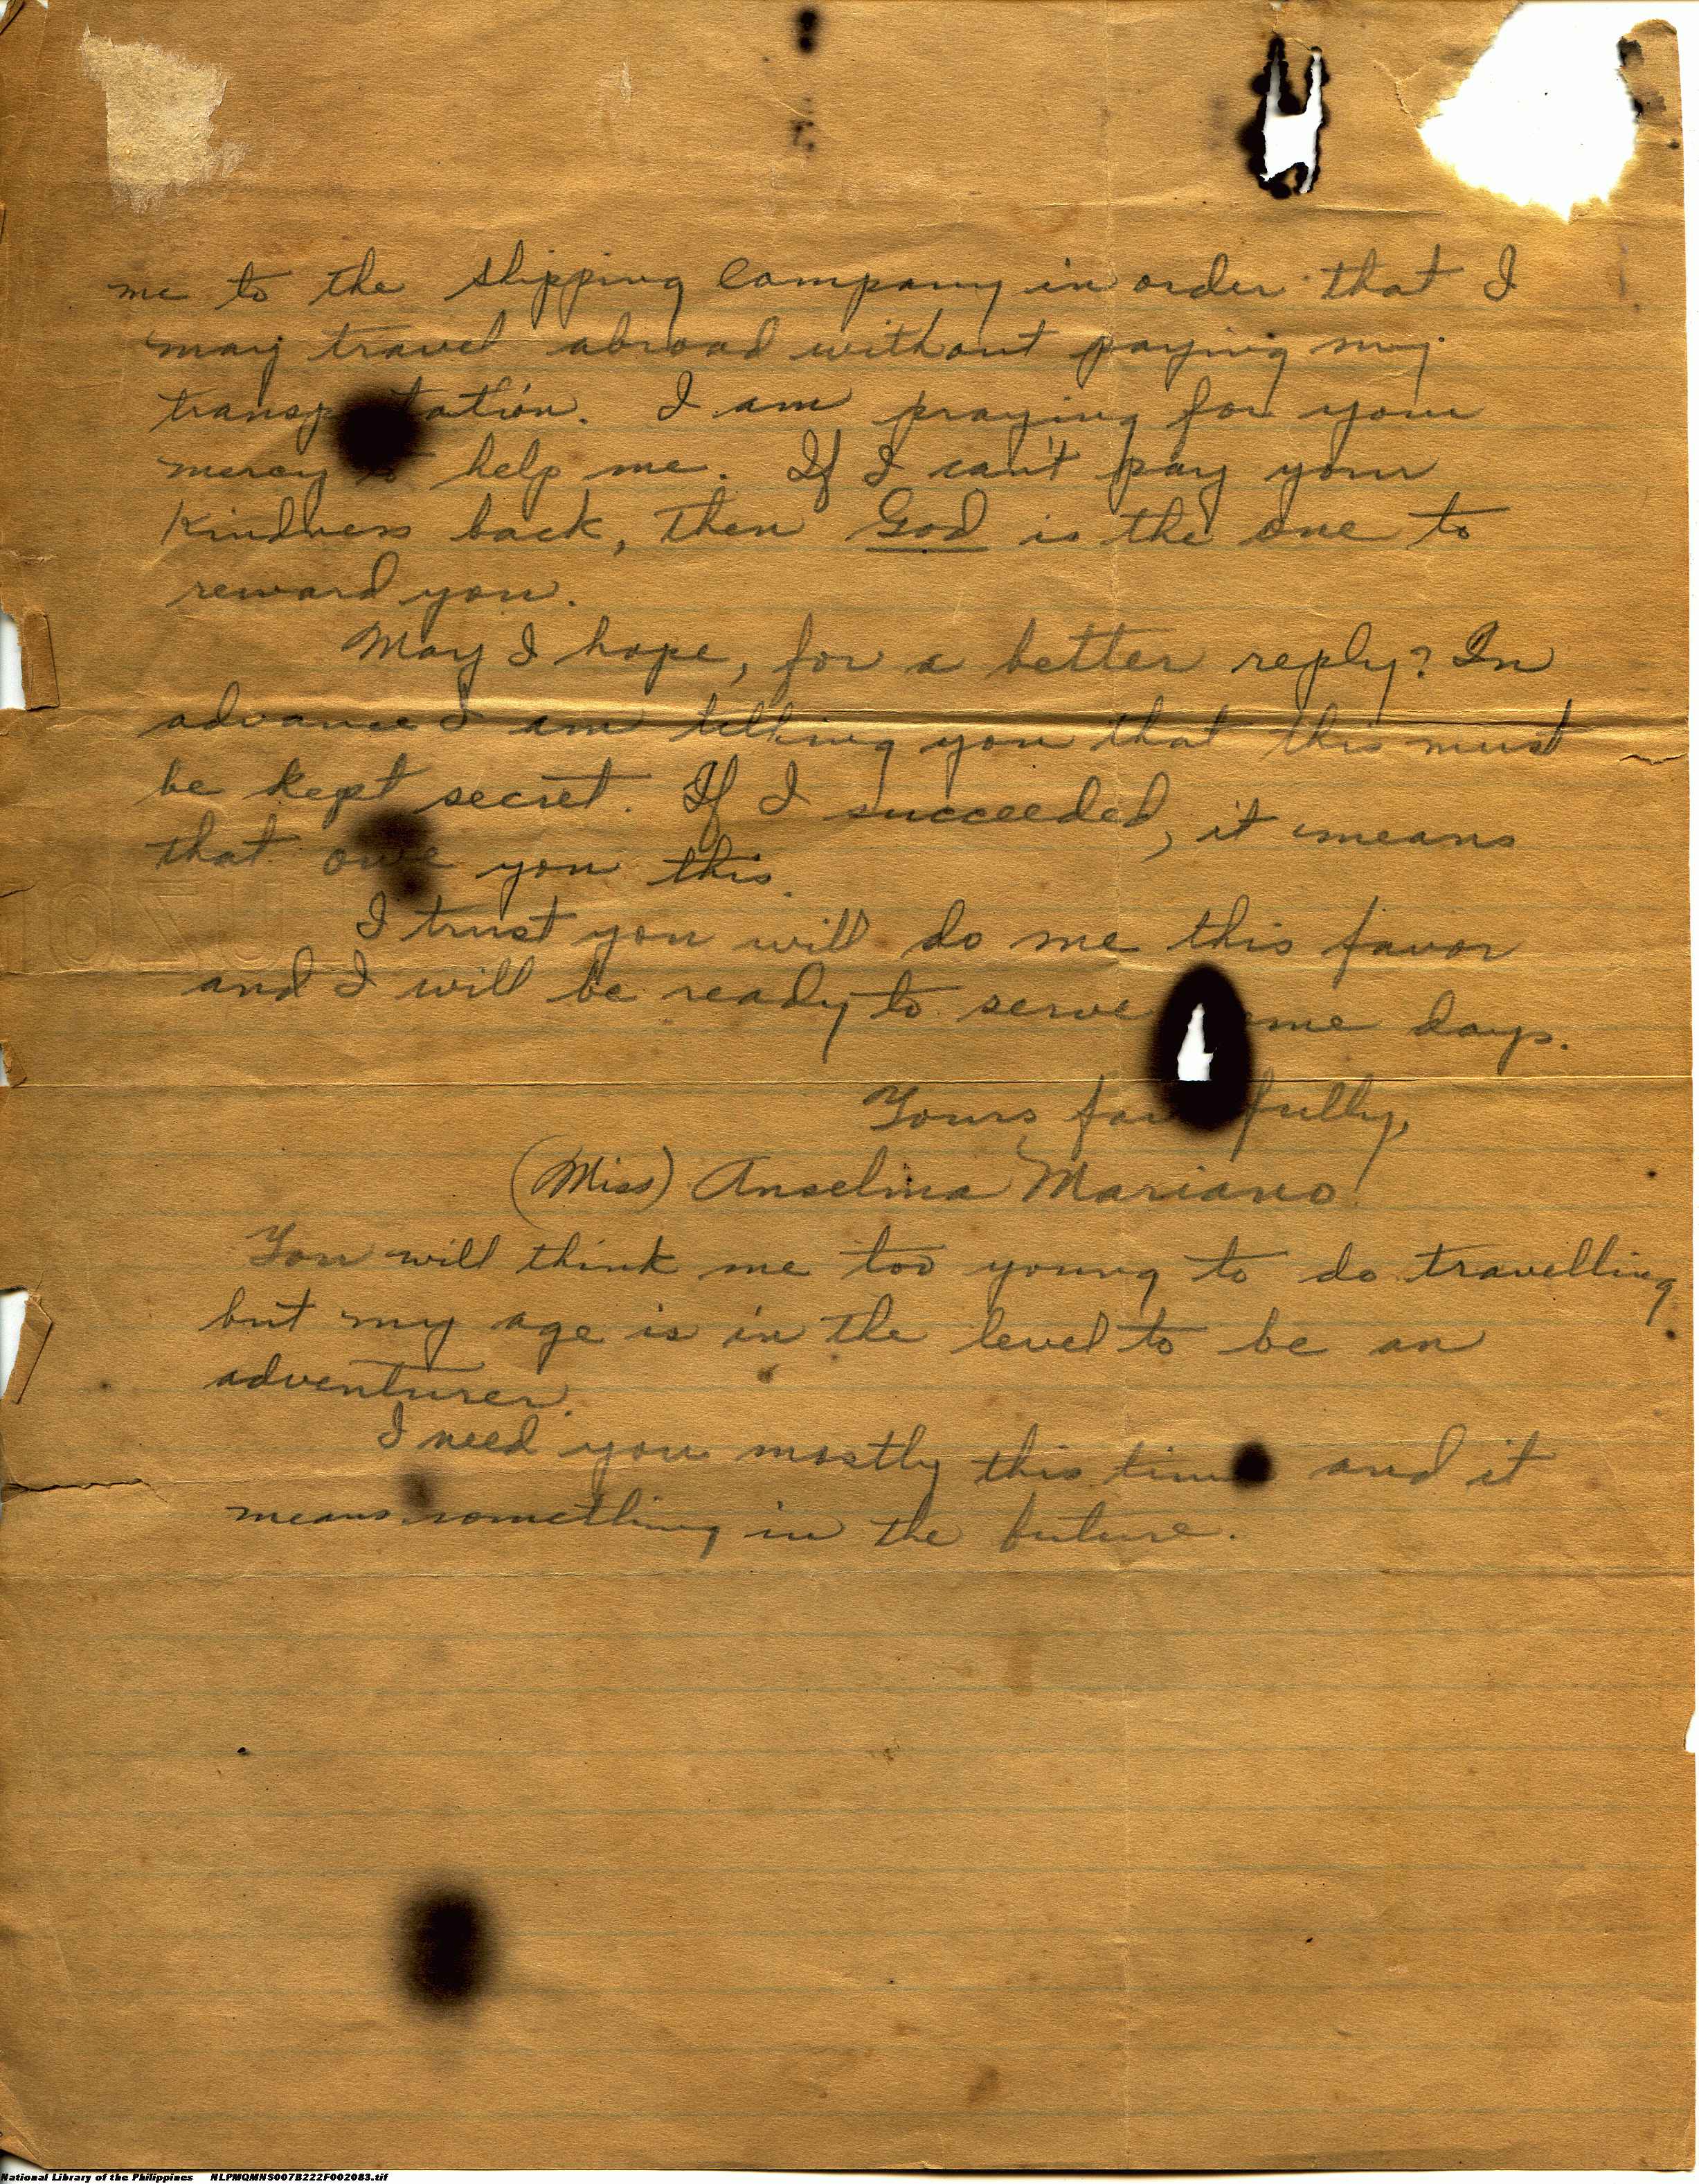 me to the shipping company in order that I
may travel abroad without paying my
transp tation. I am praying for your
mercy to help me. If I can't pay your
kindness back, then God is the one to
reward you.
May I hope, for a better reply? In
advance I am telling you that this must
be kept secret. If I succeeded, it means
that owe you this.
I trust you will do me this favor
and I will be ready to serve some days.
Yours faithfully,
(Miss) Anselma Mariano
You will think me too young to do travelling
but my age is in the level to be an
adventurer.
I need you mostly this time and it
means something in the future.
National Library of the Philippines NLPMQMNS007B222F002083.tif